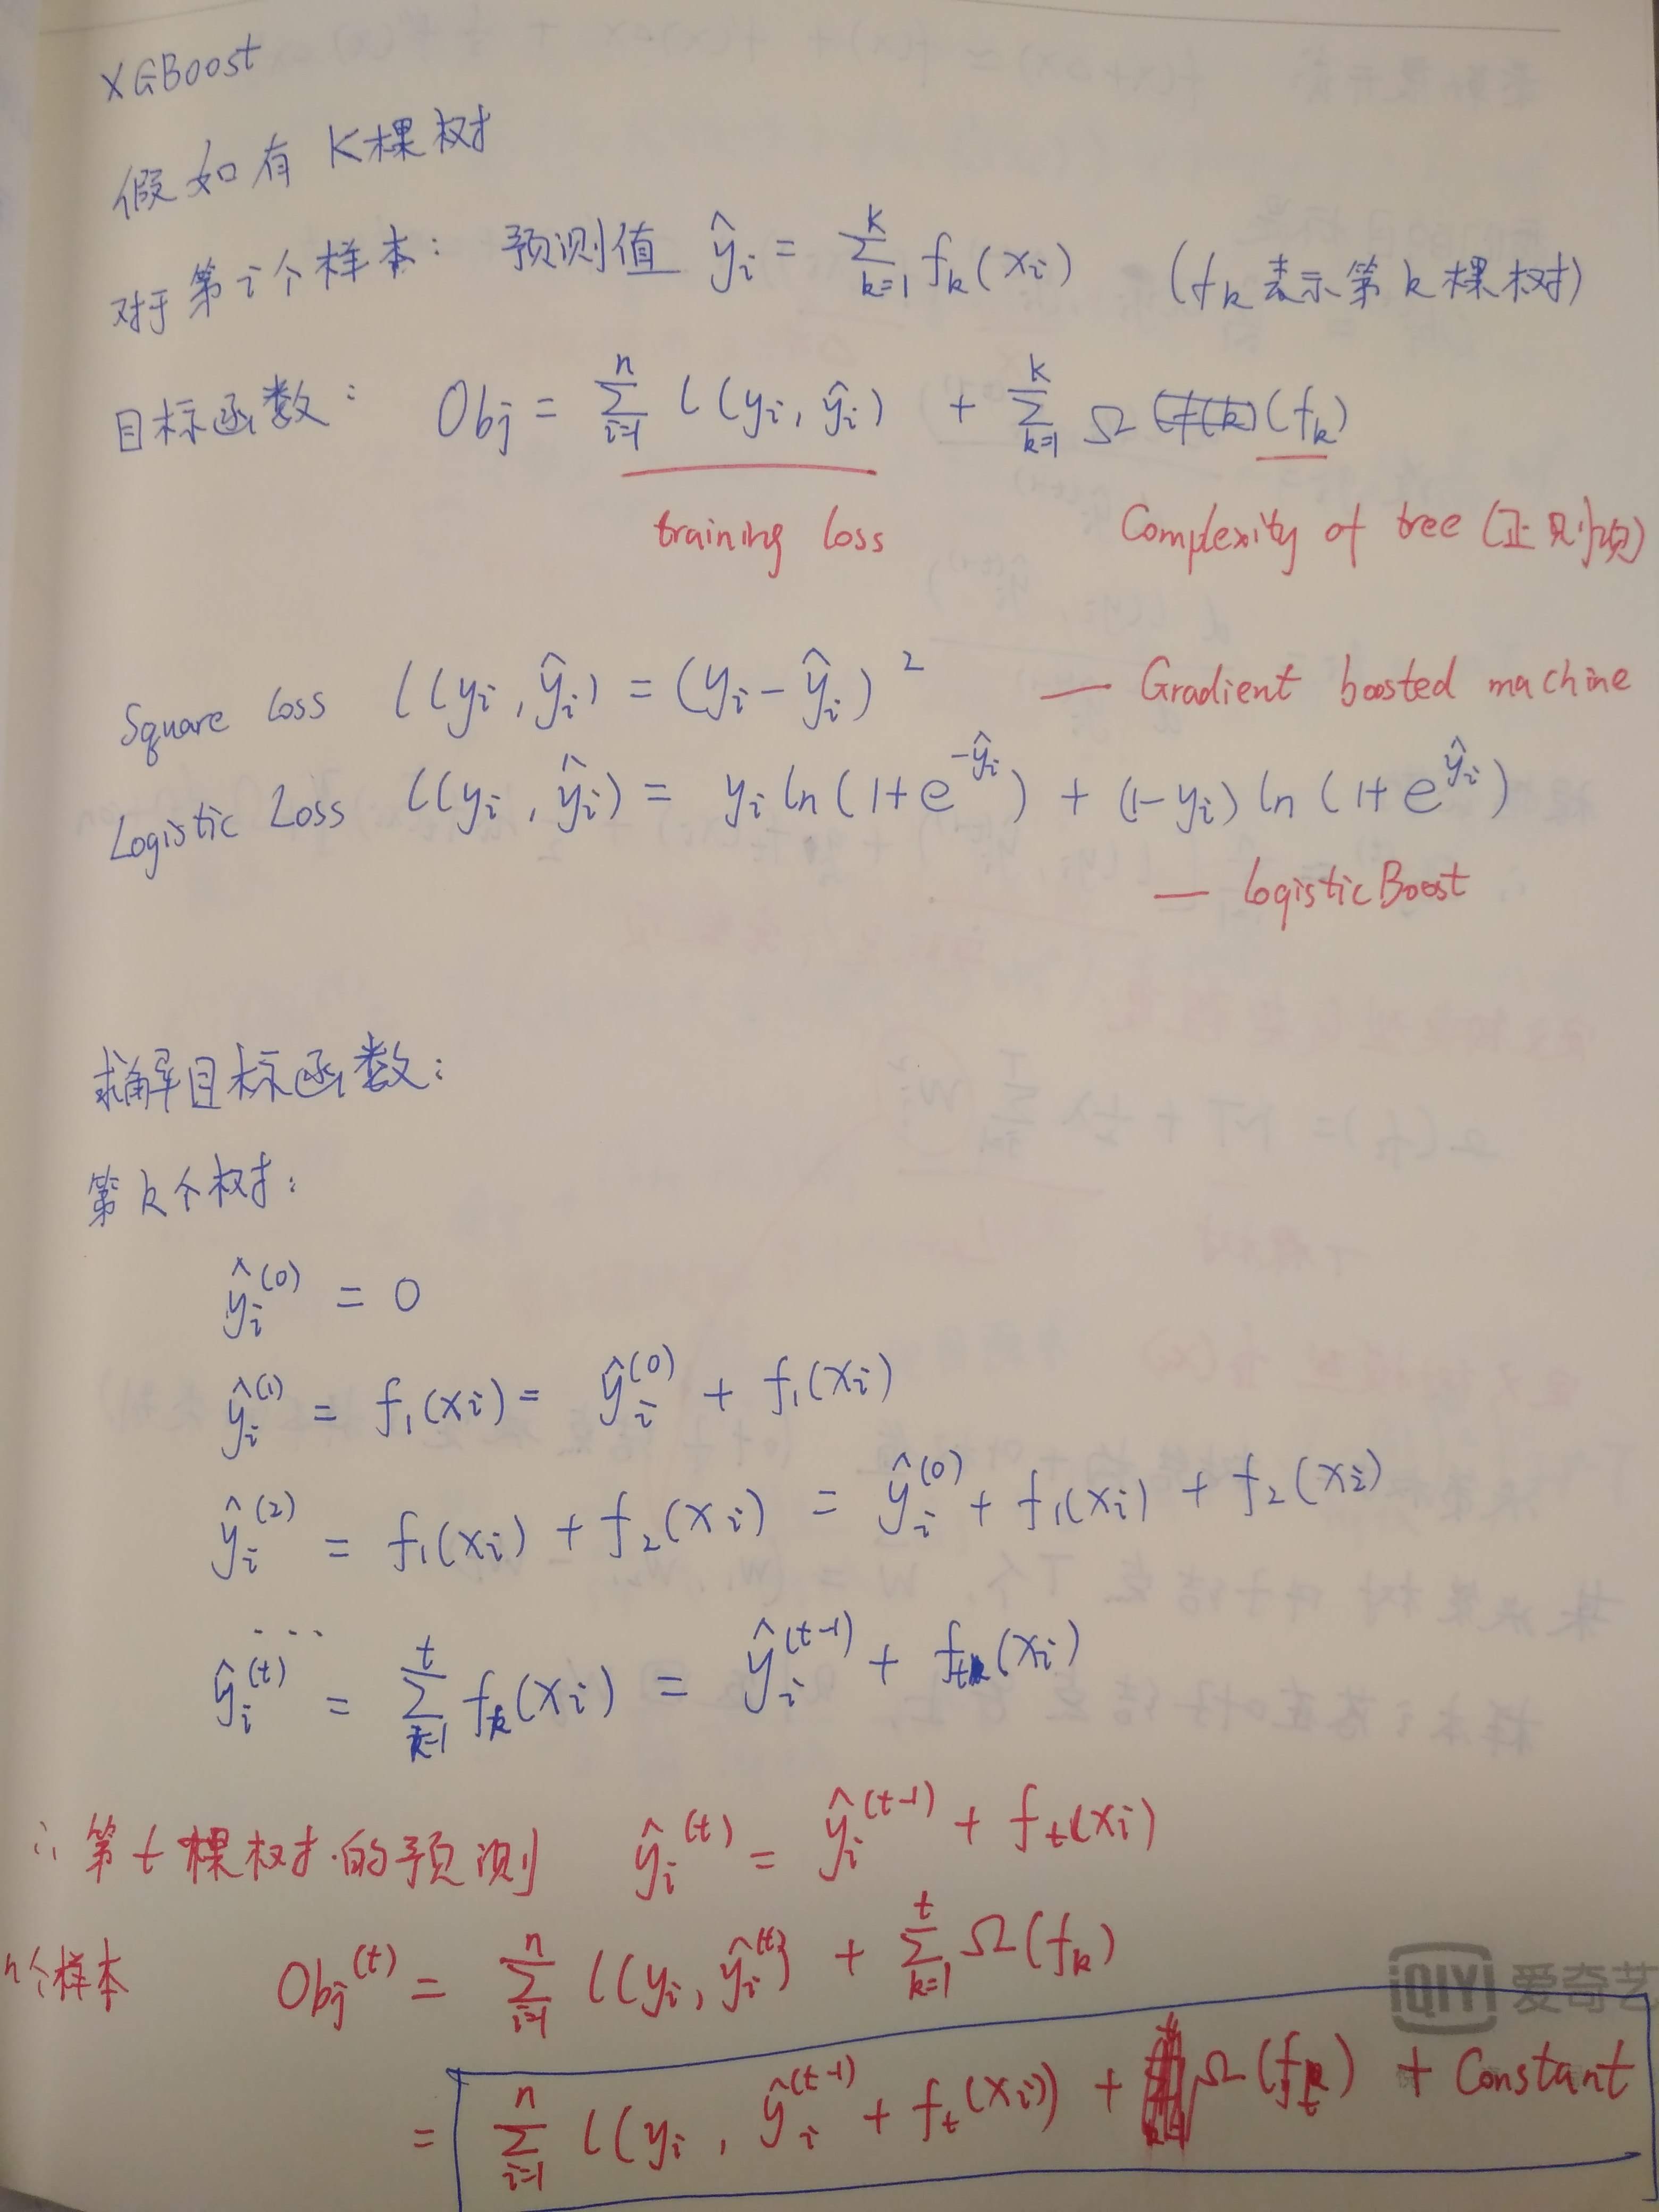 XGBoost
假如有 K棵树
对于第i个样本: 预测值 ŷᵢ = ∑_{k=1}^{K} f_k(xᵢ) (f_k表示第k棵树)
目标函数: Obj = ∑_{i=1}^{n} l(yᵢ, ŷᵢ) + ∑_{k=1}^{K} Ω (f_k)
training loss Complexity of tree (正则项)
Square loss l(yᵢ, ŷᵢ) = (yᵢ - ŷᵢ)² — Gradient boosted machine
Logistic Loss l(yᵢ, ŷᵢ) = yᵢ ln(1+e^{-ŷᵢ}) + (1-yᵢ) ln(1+e^{ŷᵢ})
— logisticBoost
求解目标函数:
第k个树:
ŷᵢ^(0) = 0
ŷᵢ^(1) = f₁(xᵢ) = ŷᵢ^(0) + f₁(xᵢ)
ŷᵢ^(2) = f₁(xᵢ) + f₂(xᵢ) = ŷᵢ^(0) + f₁(xᵢ) + f₂(xᵢ)
...
ŷᵢ^(t) = ∑_{k=1}^{t} f_k(xᵢ) = ŷᵢ^(t-1) + f_t(xᵢ)
∴ 第t棵树的预测 ŷᵢ^(t) = ŷᵢ^(t-1) + f_t(xᵢ)
n个样本 Obj^(t) = ∑_{i=1}^{n} l(yᵢ, ŷᵢ^(t)) + ∑_{k=1}^{t} Ω(f_k)
iQIYI 爱奇艺
= ∑_{i=1}^{n} l(yᵢ, ŷᵢ^(t-1) + f_t(xᵢ)) + Ω(f_t) + Constant